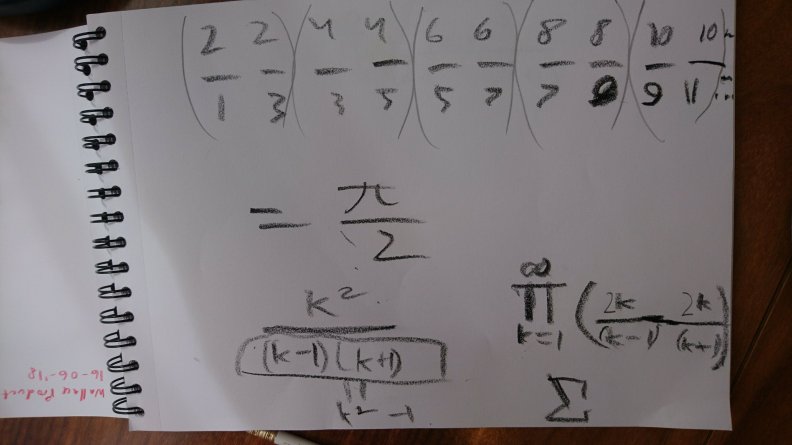 (2/1 2/3)(4/3 4/5)(6/5 6/7)(8/7 8/9)(10/9 10/11)...
= π/2
k²/((k-1)(k+1))
= k²-1
∞
∏ (2k/(k-1) 2k/(k+1))
k=1
Σ
Wallis Product
16-06-'18